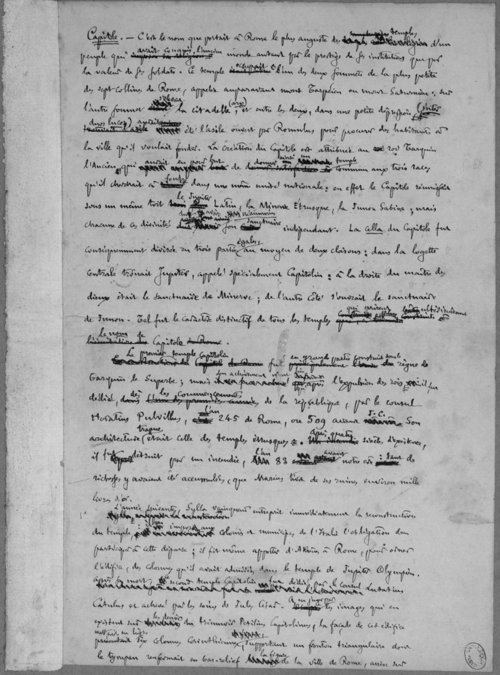 Capitole. — C'est le nom que portait à Rome le plus auguste des temples, d'un
peuple qui avait conquis l'ancien monde autant par le prestige de ses institutions que par
la valeur de ses soldats. Ce temple occupait l'un des deux sommets de la plus petite
des sept collines de Rome, appelée auparavant mont Tarpéien ou mont Saturnien, sur
l'autre sommet était la citadelle (arx), et entre les deux, dans une petite dépression (inter
duos lucos) était l'asile ouvert par Romulus pour procurer des habitants à
la ville qu'il voulait fonder. La création du Capitole est attribuée au roi Tarquin
l'Ancien, qui aurait eu pour but de donner ainsi un temple commun aux trois races
qu'il cherchait à fondre dans une même unité nationale; en effet le Capitole réunissait
sous un même toit le Jupiter Latin, la Minerve Etrusque, la Junon Sabine; mais
chacune de ces divinités son sanctuaire indépendant. La cella du Capitole fut
conséquemment divisée en trois parties égales au moyen de deux cloisons: dans la logette
centrale trônait Jupiter, appelé spécialement Capitolin; à la droite du maître des
dieux était le sanctuaire de Minerve; de l'autre côté s'ouvrait le sanctuaire
de Junon. Tel fut le caractère distinctif de tous les temples qui prirent ultérieurement
le nom de Capitole.
Le premier temple Capitolin fut en grande partie construit sous le règne de
Tarquin le Superbe, mais son achèvement n'eut lieu qu'après l'expulsion des rois; il fut
dédié dès les commencements de la république, par le consul
Horatius Pulvillus, l'an 245 de Rome, ou 509 avant J.-C. Son
architecture était celle des temples étrusques. Après quatre siècles d'existence,
il fut détruit par un incendie, l'an 83 avant notre ère;
richesses y avaient été accumulées, que Marius tira de ses ruines environ mille
livres d'or.
L'année suivante, Sylla vainqueur entreprit immédiatement la reconstruction
du temple, imposa aux colonies et municipes, de l'Italie l'obligation de
participer à cette dépense; il fit même apporter d'Athènes à Rome, pour orner
l'édifice, des colonnes qu'il avait admirées dans le temple de Jupiter Olympien.
Après sa mort, le second temple Capitolin fut dédié par le consul Lutatius
Catulus et achevé par les soins de Jules César. A en juger par les images qui en
existent sur les deniers du triumvir Petilius Capitolinus, la façade de cet édifice
mettait en ligne six colonnes Corinthiennes, supportant un fronton triangulaire dont
le tympan renfermait en bas-relief la figure de la ville de Rome, assise sur